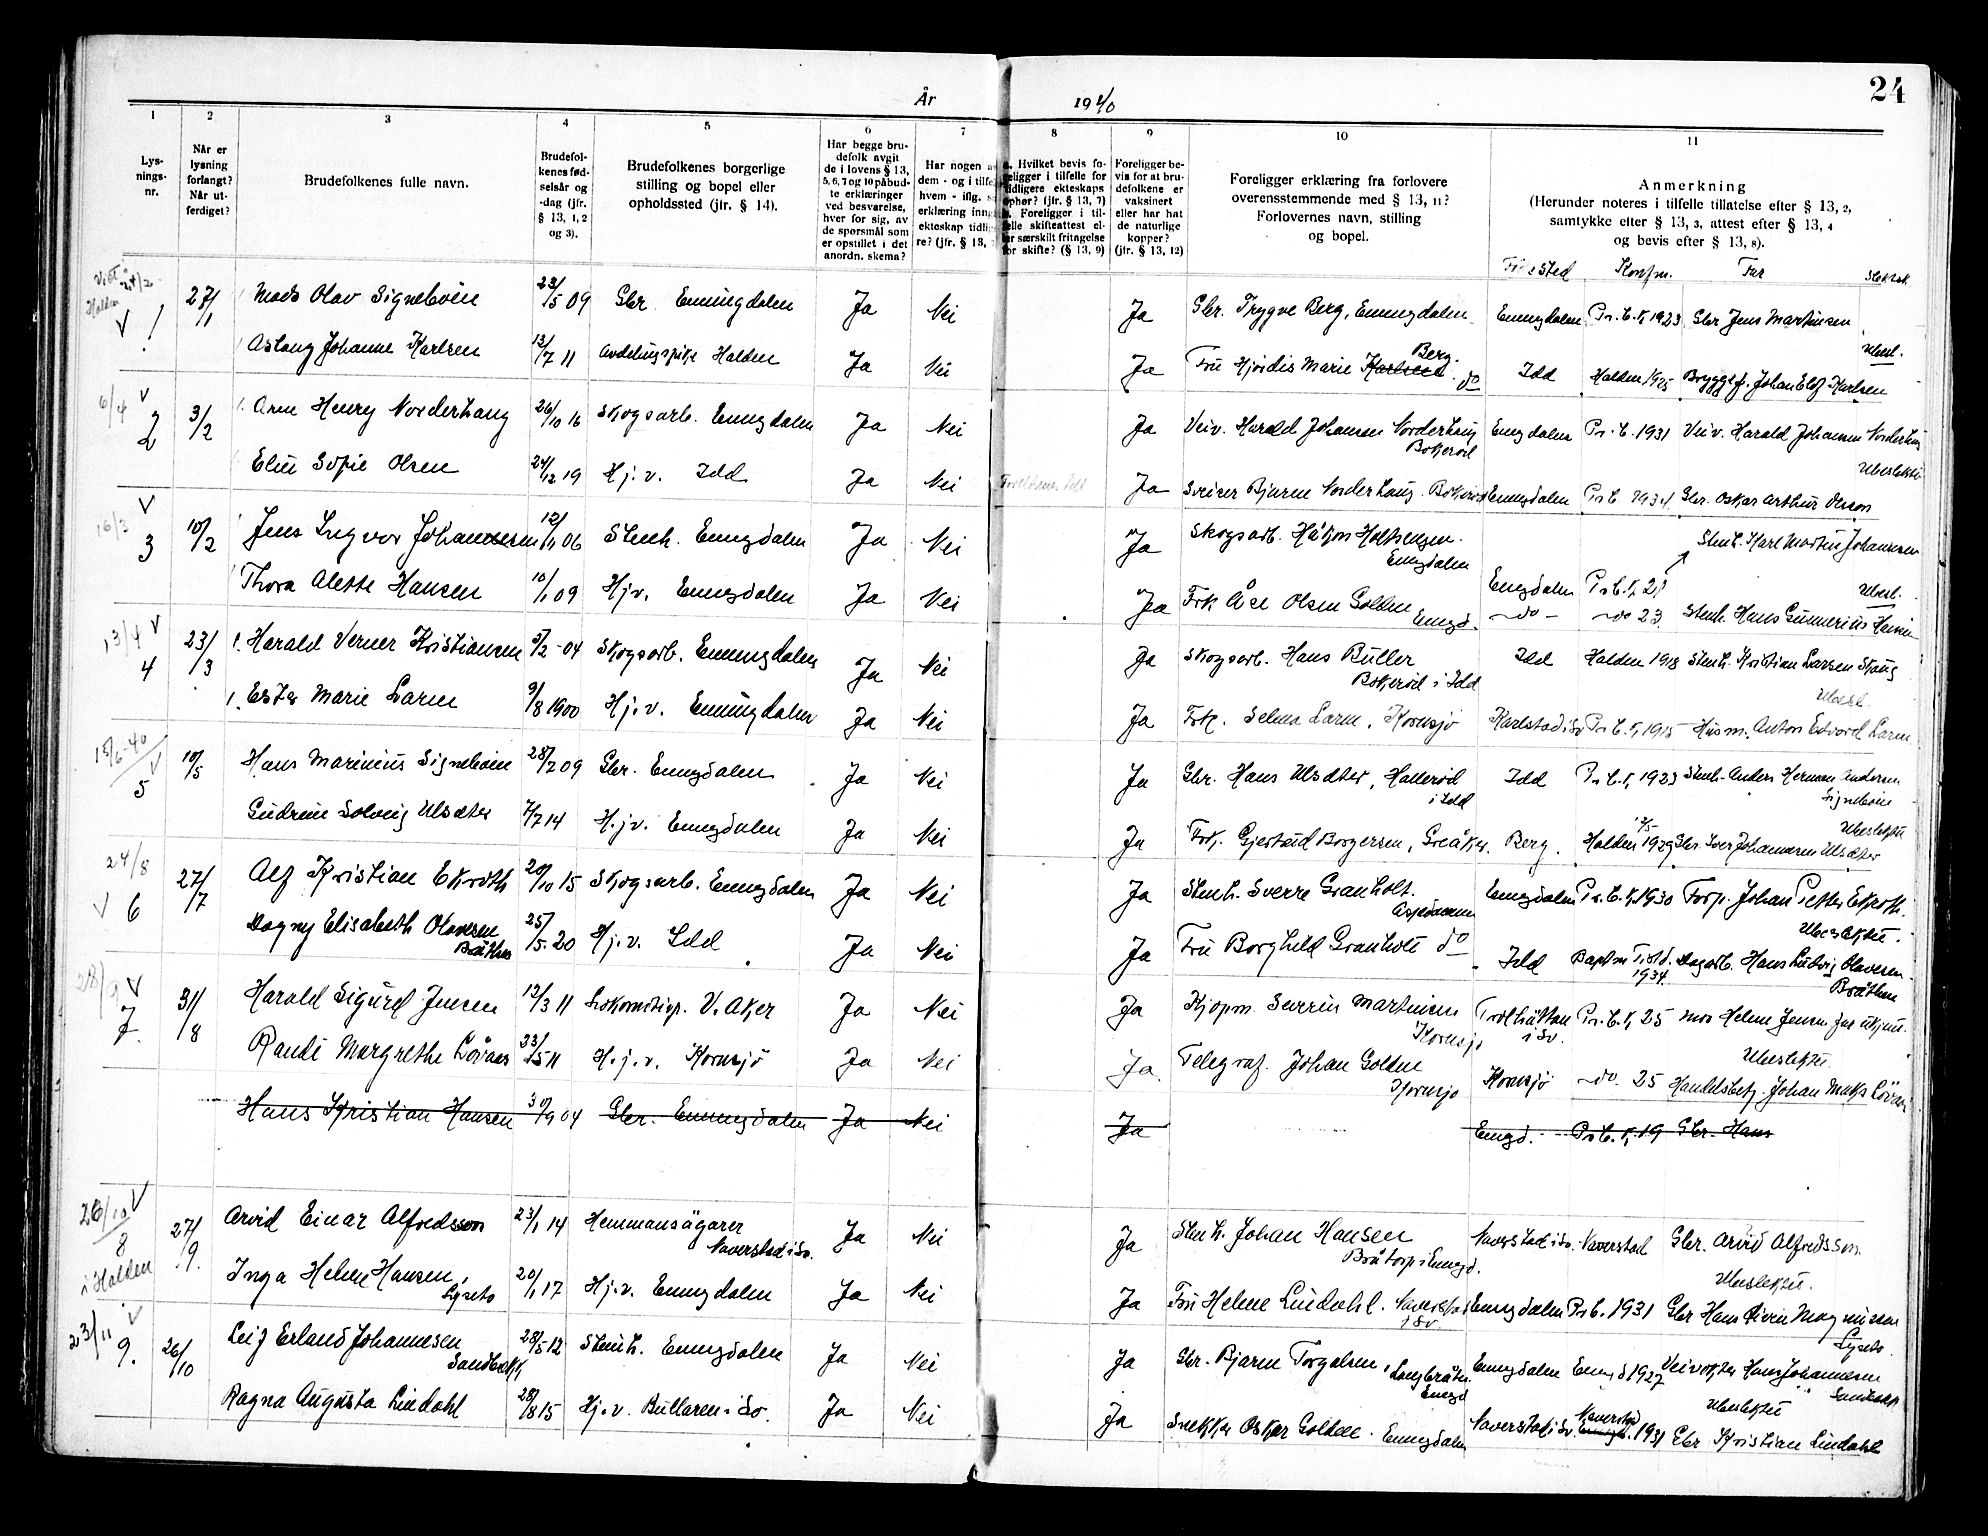 24
År 1940
1 2 3 4 5 6 7 8 9 10 11
Lys-
nings-
nr.
Når er
lysning
forlangt?
Når ut-
ferdiget?
Brudefolkenes fulle navn.
Brudefol-
kenes fød-
selsår og
-dag (jfr.
§ 13, 1, 2
og 3).
Brudefolkenes borgerlige
stilling og bopel eller
opholdssted (jfr. § 14).
Har begge bru-
defolk avgit
de i lovens § 13,
5, 6, 7 og 10 påbud-
te erklæringer
ved besvarelse,
hver for sig, av
de spørsmål som
er opstillet i det
anordn. skema?
Har nogen a
dem - og i tilfe
hvem - iflg.
erklæring inng
ekteskap tidli
re? (jfr. § 13,
a. Hvilket bevis fo-
religger i tilfelle for
tidligere ekteskaps
ophør? (jfr. § 13, 7)
b. Foreligger i til-
felle skifteattest el-
ler særskilt fritagelse
for skifte? (§ 13, 9)
Foreligger be-
vis for at bru-
defolkene er
vaksinert
eller har hat
de naturlige
kopper?
(jfr. § 13, 12)
Foreligger erklæring fra forlovere
overensstemmende med § 13, 11?
Forlovernes navn, stilling
og bopel.
Anmerkning
(Herunder noteres i tilfelle tillatelse efter § 13, 2,
samtykke efter § 13, 3, attest efter § 13, 4
og bevis efter § 13, 8).
Fødested Konfm. Far Slektsk.
1 27/1 Mads Olav Signebøen 23/5 09 Gbr. Enningdalen Ja Nei Ja Gbr. Trygve Berg, Enningdalen Enningdalen Pr. b. k, 1923 Gbr Jens Martinsen
Ubesl.
Aslaug Johanne Karlsen 13/7 11 Avdelingspike Halden Ja Nei Ja Fru Hjørdis Marie Karlsen Berg. do Idd Halden 1925 Bryggef. Johan Elof Karlsen
6/4 V 2 3/2 Arne Henry Norderhaug 26/10 16 Skogsarb. Enngdalen Ja Nei Ja Veiv. Harald Johansen Norderhaug Bokerød Enngdalen Pr. b. 1931 Veiv. Harald Johansen Norderhaug
Ubeslektet
Elin Sofie Olsen 24/12 19 Hj. v. Idd Ja Nei Ja Sveiser Bjarne Norderhaug. Bokerød Enningdalen Pr b. 1934. Gbr. Oskar Arthur Olsson
16/3 V 3 10/2 Jens Ingvar Johannesen 12/11 06 Stenh. Enngdalen Ja Nei Ja Skogsarb. Håkon Holtsengen. Enngdalen Enngdalen Pr b. k, 21 Stenh. Karl Martin Johannesen
Ubesl.
Thora Alette Hansen 10/1 09 Hjv. Enngdalen Ja Nei Ja Frk Åse Olsen Golden Enngd. - do - do 23. Stenh. Hans Gunnerius Hansen
13/4 V 4 23/3 Harald Verner Kristiansen 5/2 - 04 Skogsarb. Enningdalen Ja Nei Ja Skogsarb. Hans Buller Bokerød i Idd Idd Halden 1918 Stenh. Kristian Larsen Skaug
Ubesl.
Ester Marie Larm 9/8 1900 Hj. v. Enningdalen Ja Nei Ja Frk. Selma Larm, Kornsjø Karlstad i Sv Pr b. k, 1915 Husm. Anton Edvard Larm
15/6-40 V 5 10/5 Hans Marinius Signebøen 28/2 09 Gbr. Enngdalen Ja Nei Ja Gbr. Hans Ulsæter, Hallerød i Idd Idd Pr b. k, 1923 Stenh. Anders Herman Andersen Signebøen
Ubeslektet
Gudrun Solveig Ulsæter 7/7 14 Hj. v. Enngdalen Ja Nei Ja Frk. Gjertrud Borgersen, Greåker. Berg. Halden 1929 Gbr. Iver Johannesen Ulsæter
24/8 V 6 27/7 Alf Kristian Ekroth 20/10 15 Skogsarb. Enngdalen Ja Nei Ja Stenh. Sverre Granholt. Enngdalen Pr. b. k, 1930 Forp. Johan Petter Ekroth.
Ubeslektet.
Dagny Elisabeth Olavesen Bråthen 25/5. 20 Hj. v. Idd Ja Nei Ja Fru Borghild Granholt do Idd Baptm Tistd. 1934 Dagarb. Hans Ludvig Olavesen Bråthen
28/9 V 7. 31/8 Harald Sigurd Jensen 12/3 11 Lokomotivp. V. Aker Ja Nei Ja Kjøpm. Severin Martinsen Kornsjø Trolhättan i Sv. Pr. b. k, 25 Mor Helene Jensen
Ubeslektet.
Randi Margrethe Løvaas 23/5 11 H. j. v. Kornsjø Ja Nei Ja. Telegraf. Johan Golden Kornsjø Kornsjø - do. 25 Handelsbetj. Johan Løvaas
Hans Kristian Hansen 30/9 04 Gbr. Enningdalen Ja Nei Ja Enngd. Pr b. k, 19 Gbr. Hans
26/10 V 8 i Halden 27/9. Arvid Einar Alfredsson 23/1 14 Hemmansägarer Naverstad i Sv. Ja Nei Ja Stenh. Johan Hansen Bråtorp i Enngd. Naverstad i Sv. Naverstad Gbr. Arvid Alfredsson.
Ubeslektet.
Inga Helene Hansen, Lyseto 20/1 17 Hj. v. Enngdalen Ja Nei Ja Fru Helene Lindahl. Naverstad i Sv. Enngdalen Pr b. 1931 Gbr Hans Magnussen Lyseto.
23/11 V 9. 26/10 Leif Erland Johannesen Sandbekk, 28/5 12 Stenh. Enngdalen Ja Nei Ja Gbr. Bjarne Torgalsen, Langbråten Enngd Enningdalen Enngd 1927 Veivokter Hans Johannesen Sandbekk
Ubeslektet
Ragna Augusta Lindahl 28/8 15 Hj. v. Bullaren i Sv. Ja Nei Ja Snekker Oskar Golden. Enngdalen Naverstad i Sv. Naverstad Enngd. 1931 Gbr Kristian Lindahl